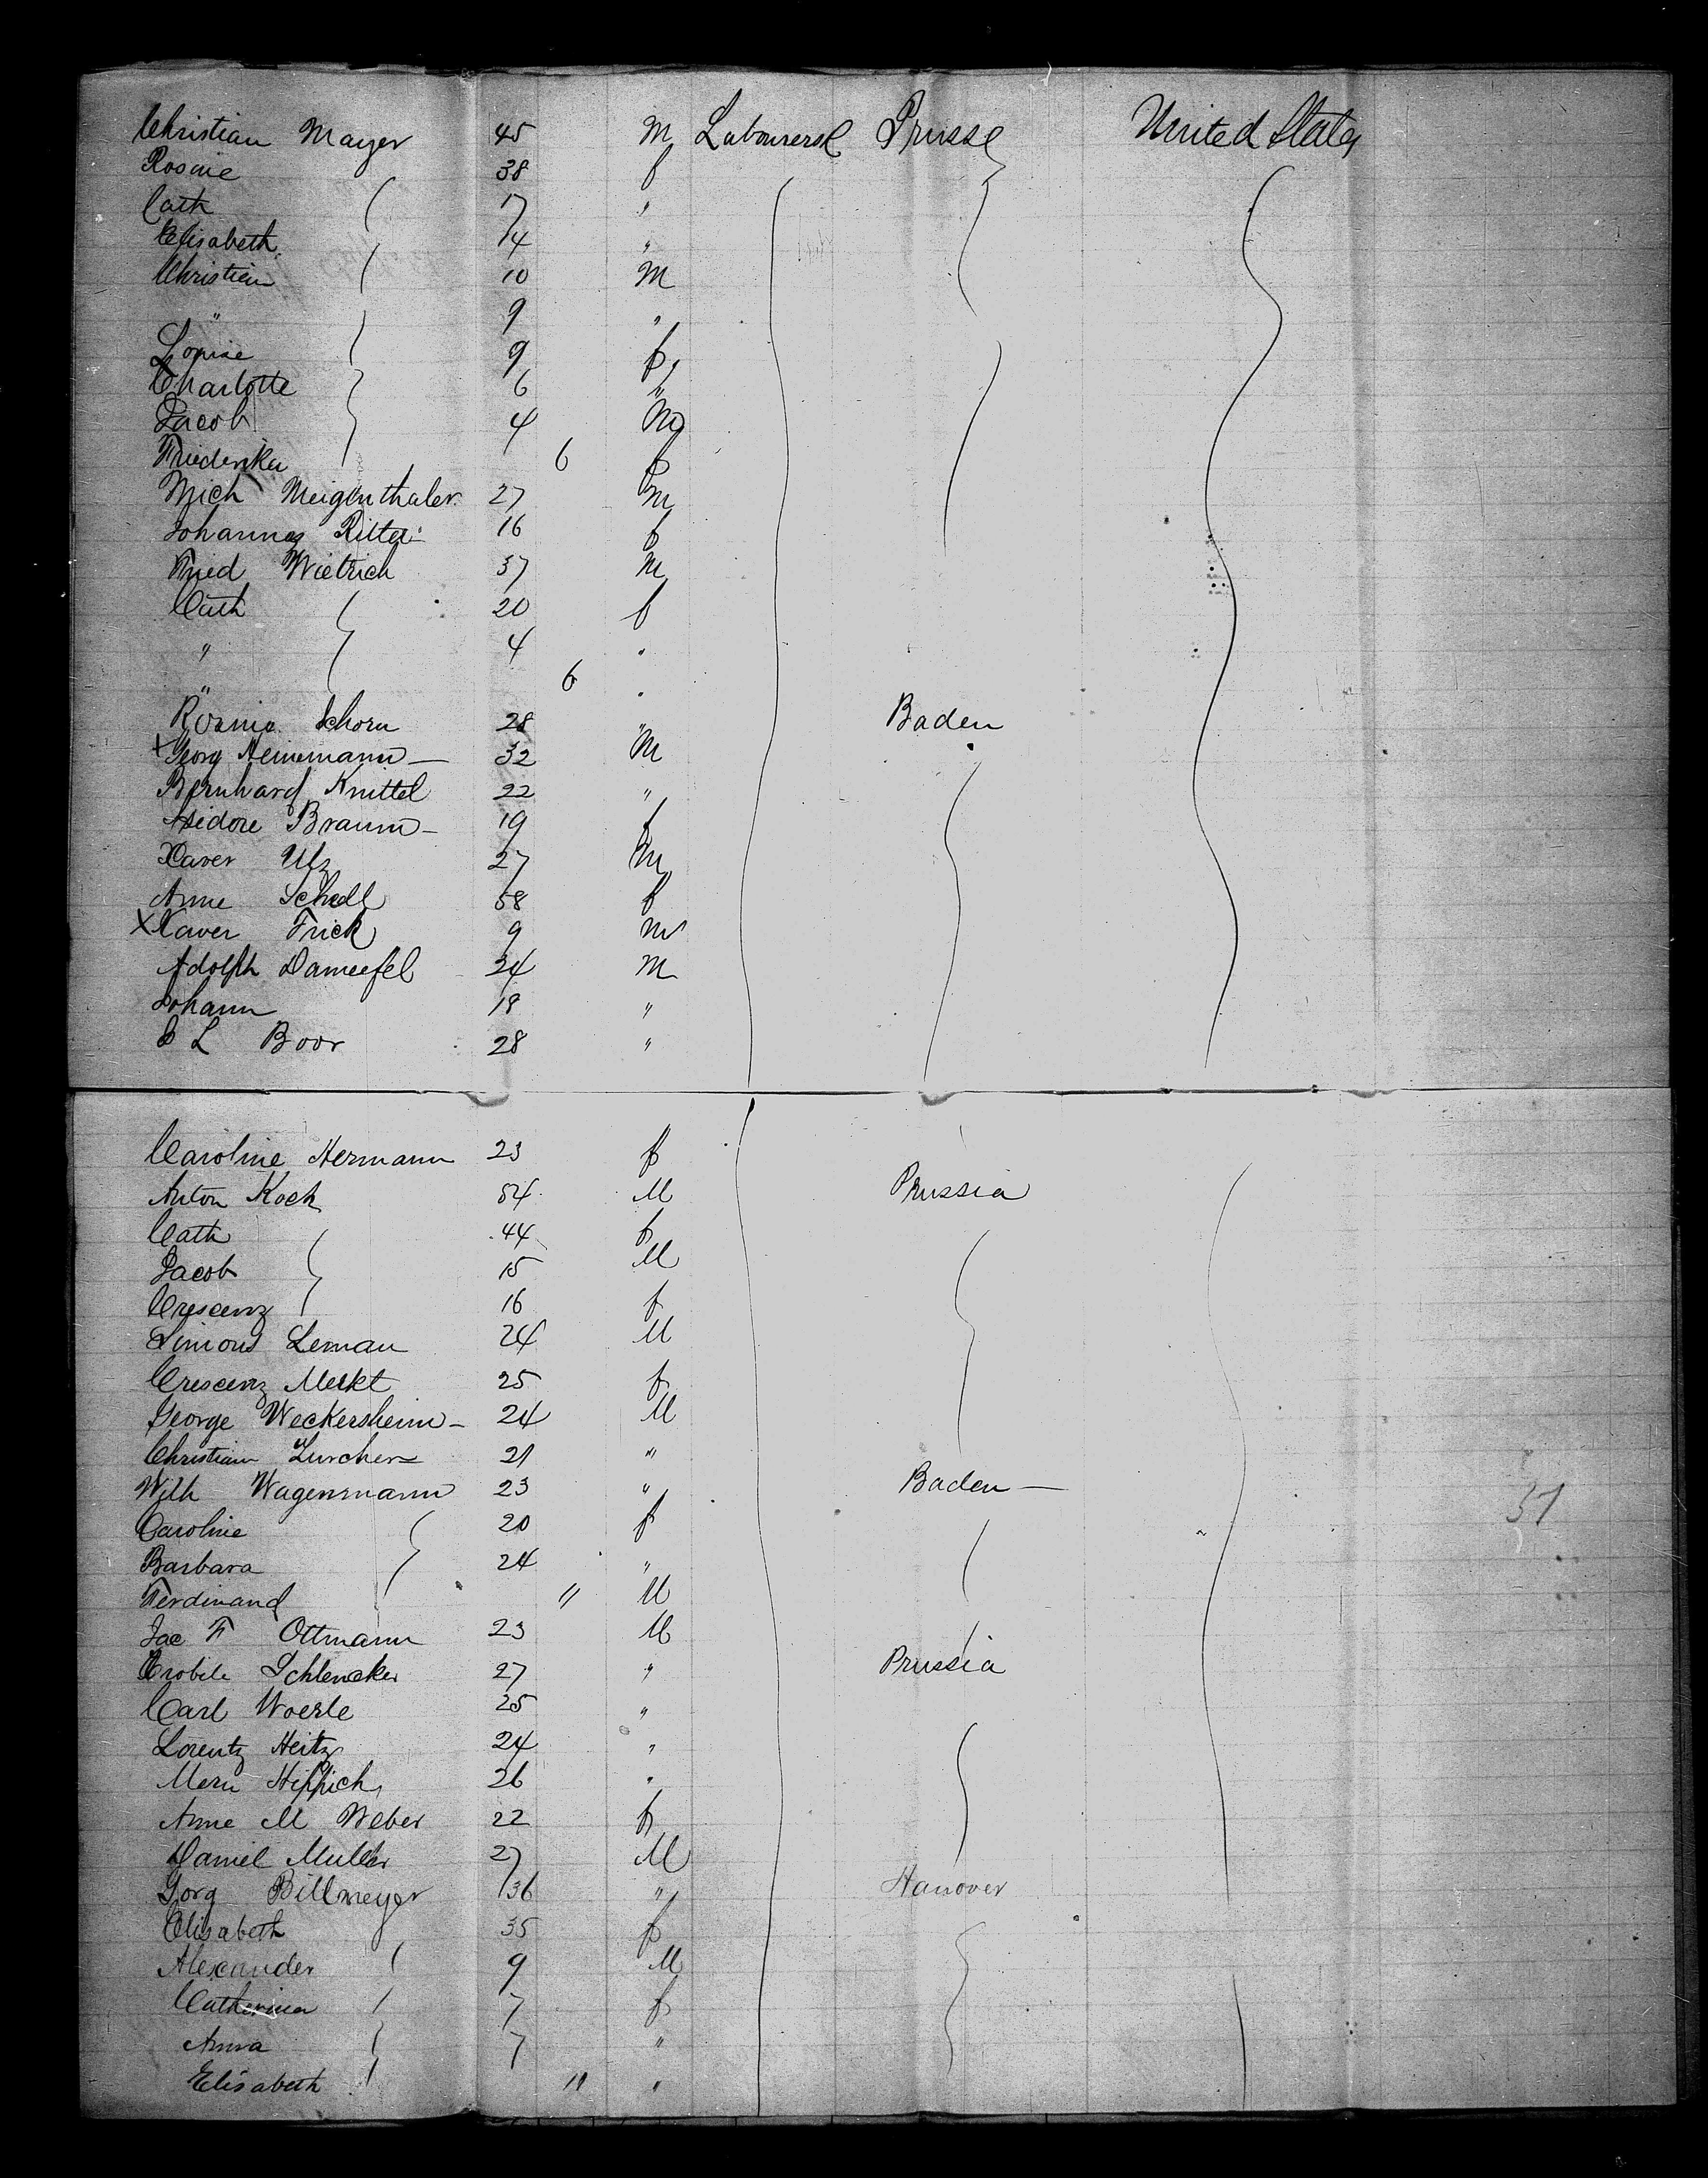 Christian Mayer 45 M Labourers Prusse United States
Rosine 38 f
Cath 17 "
Elisabeth 14 "
Christian 10 M
" 9 "
Louise 9 f
Charlotte 6 "
Jacob 4 M
Friederika 6 f
Mich Meigenthaler 27 M
Johannes Ritter 16 f
Fried Wietrich 37 M
Cath 20 f
" 4 "
" 6 "
Rosine Schorn 28 " Baden
x Georg Heinemann 32 M
Bernhard Knittel 22 "
Isidore Braun 19 f
Xaver Utz 27 M
Anne Schedl 58 f
x Xaver Frick 9 M
Adolph 24 M
Johann 19 "
L Boor 28 "
Caroline Hermann 23 f
Anton Koch 54 M Prussia
Cath 44 f
Jacob 15 M
Crescenz 16 f
Simons Leman 24 M
Crescenz Merkt 25 f
George Weckersheim 24 M
Christian Zurcher 21 "
Wilh Wagenmann 23 " Baden
Caroline 20 f
Barbara 24 "
Ferdinand 11 M
Jac F Ottmann 23 M
Schlencker 27 " Prussia
Carl Woerle 25 "
Lorentz Heitz 24 "
Hippich 26 "
Anne M Weber 22 f
Daniel Muller 27 M
Gorg Billmeyer 36 " Hanover
Elisabeth 35 f
Alexander 9 M
Catherina 7 f
Anna 7 "
Elisabeth 11 "
37